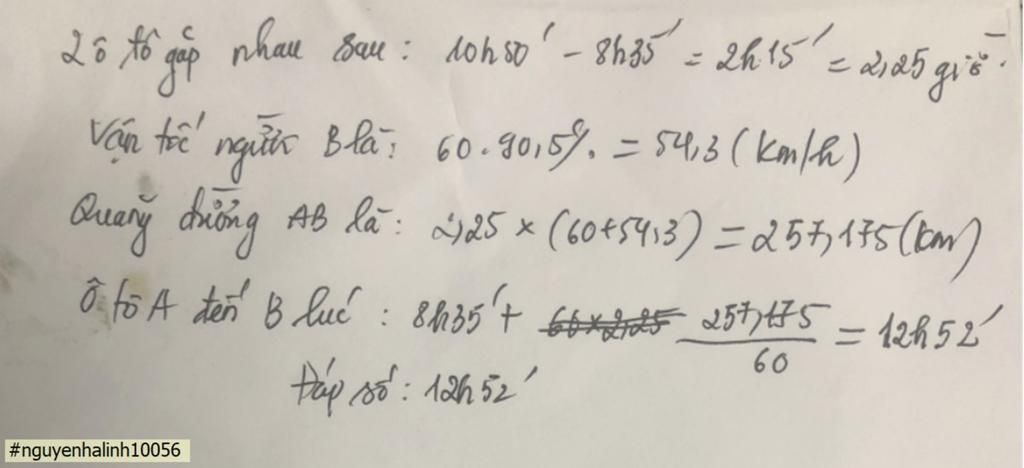 2 ô tô gặp nhau sau: 10h50' - 8h35' = 2h15' = 2,25 giờ.
Vận tốc người B là: 60.90,5% = 54,3 (km/h)
Quãng đường AB là: 2,25 × (60+54,3) = 257,175 (km)
Ô tô A đến B lúc: 8h35' + 60×2,25 257,175/60 = 12h52'
Đáp số: 12h52'
#nguyenhalinh10056